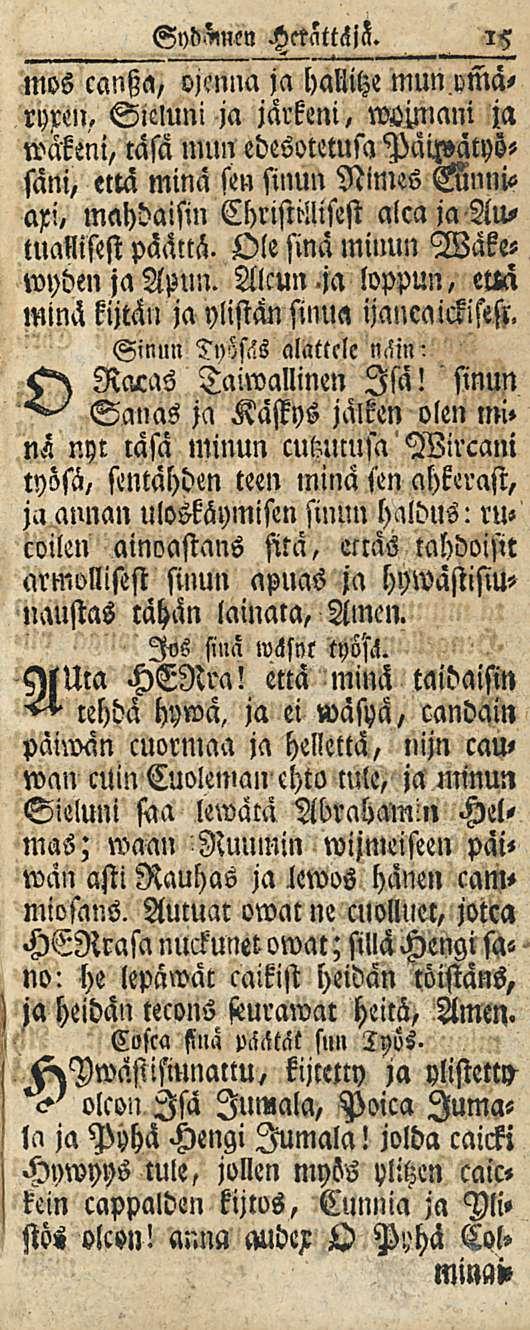 Sydämen Herättäjä. 15
mos canßa, ojenna ja hallitze mun ym̃är-
ryxen, Sieluni ja järkeni, woimani ja
wäkeni, täsä mun edesotetusa Päiwätyö-
säni, että minä sen sinun Nimes Cunni-
axi, mahdaisin Christillisest alca ja Au-
tuallisest päättä. Ole sinä minun Wäke-
wyden ja Apun. Alcun ja loppun, että
minä kijtän ja ylistän sinua ijancaickisest.
Sinun Työsäs alattele näin:
O Racas Taiwallinen Isä! sinun
Sanas ja Käskys jälken olen mi-
nä nyt täsä minun cutzutusa Wircani
työsä, sentähden teen minä sen ahkerast,
ja annan uloskäymisen sinun haldus: ru-
coilen ainoastans sitä, ettäs tahdoisit
armollisest sinun apuas ja hywästisiu-
naustas tähän lainata, Amen.
Jos sinä wäsyt työsä.
AUta HERra! että minä taidaisin
tehdä hywä, ja ei wäsyä, candain
päiwän cuormaa ja hellettä, nijn cau-
wan cuin Cuoleman ehto tule, ja minun
Sieluni saa lewätä Abrahamin Hel-
mas; waan Ruumin wijmeiseen päi-
wän asti Rauhas ja lewos hänen cam-
miosans. Autuat owat ne cuolluet, jotca
HERrasa nuckunet owat; sillä Hengi sa-
no: he lepäwät caikist heidän töistäns,
ja heidän tecons seurawat heitä, Amen.
Cosca sinä päätät sun Työs.
HYwästisiunattu, kijtetty ja ylistetty
olcon Isä Jumala, Poica Juma-
la ja Pyhä Hengi Jumala! jolda caicki
Hywyys tule, jollen myös ylitzen caic-
kein cappalden kijtos, Cunnia ja Yli-
stös olcon! anna andex O Pyhä Col-
minai-